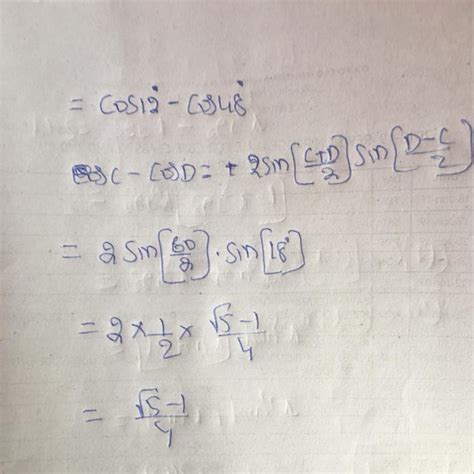 = cos12° - cos48°
cosC - cosD = + 2sin[C+D/2] sin[D-C/2]
= 2 sin[60/2] . sin[18°]
= 2 × 1/2 × √5 - 1/4
= √5 - 1/4